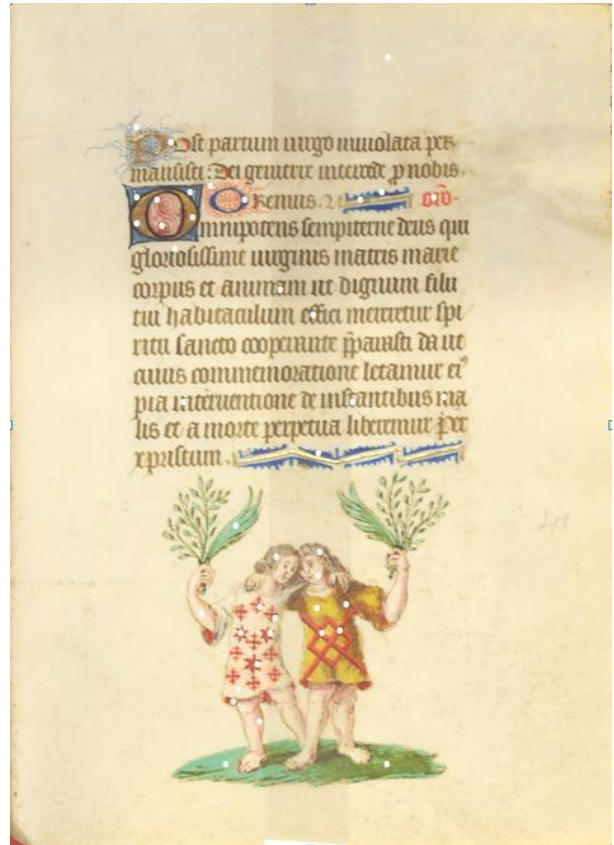 Post partum uirgo inuiolata per
mansisti: Dei genitrix intercede p nobis.
Oremus. oro.
Omnipotens sempiterne deus qui
gloriosissime uirginis matris marie
corpus et animam ut dignum filii
tui habitaculum effici mereretur spi
ritu sancto cooperante p̄parasti da ut
cuius commemoratione letamur ei᾽
pia interuentione de instantibus ma
lis et a morte perpetua liberemur per
xpristum.